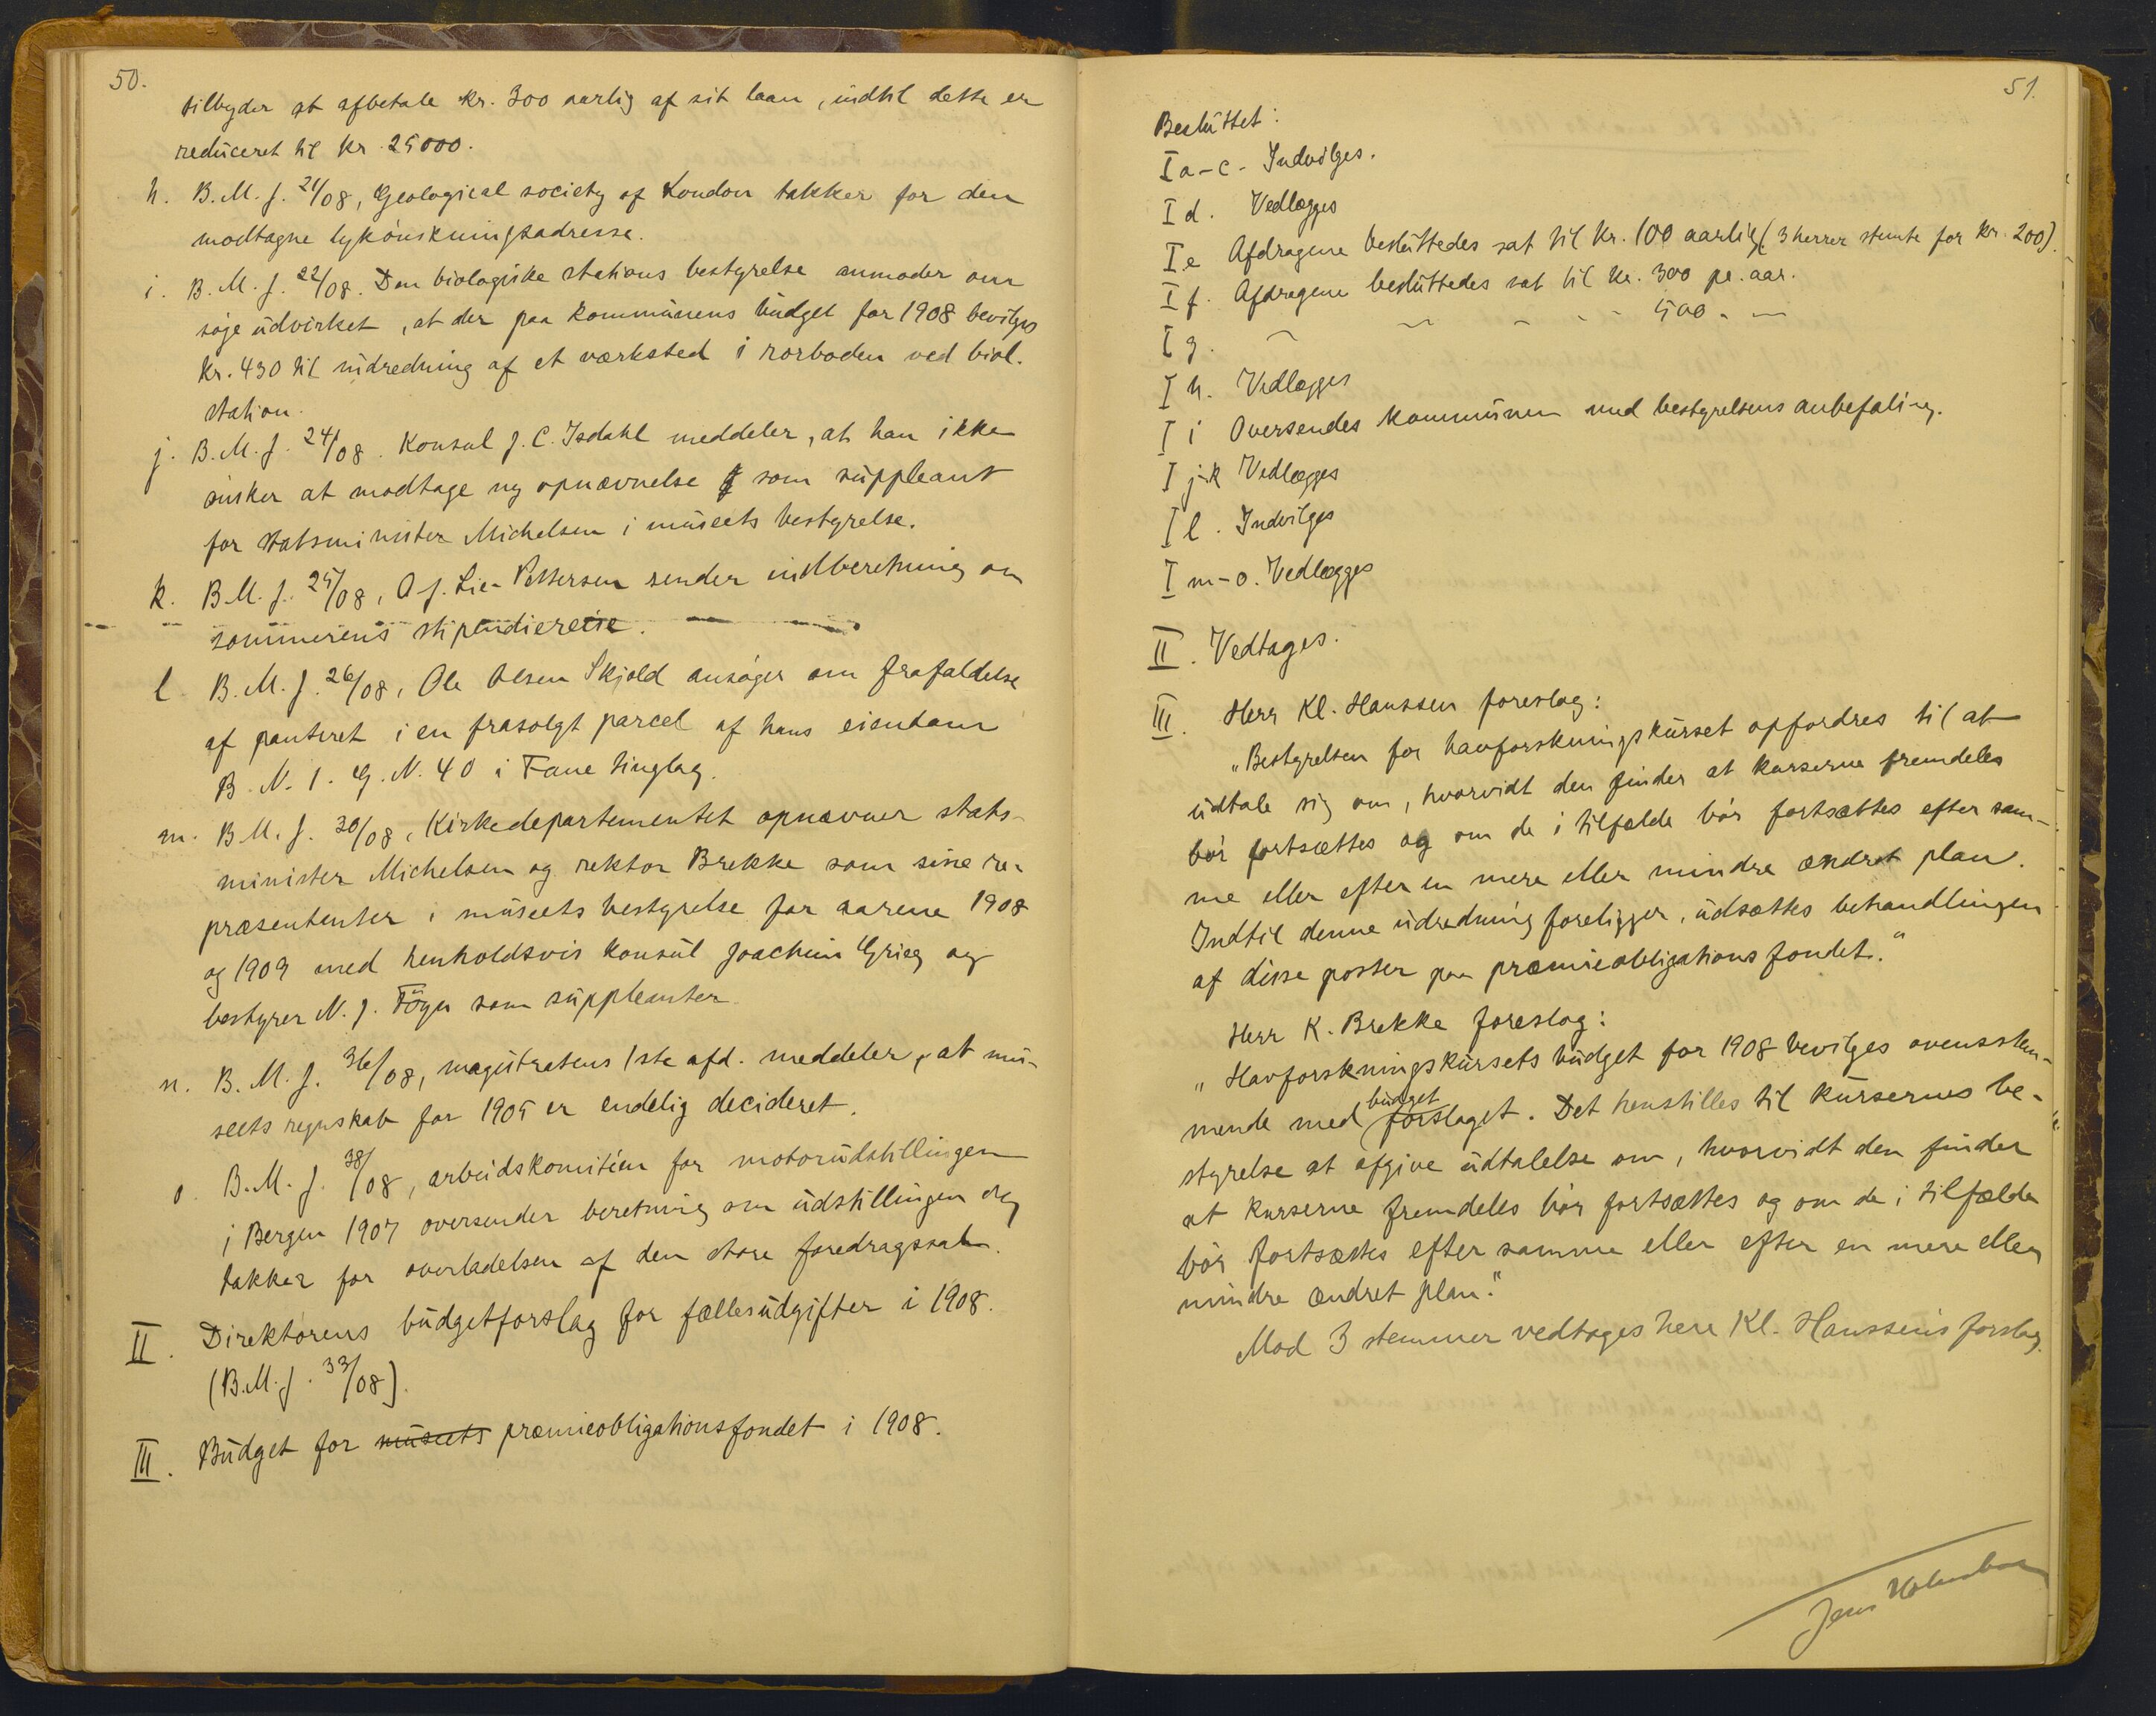 50.
tilbyder at afbetale kr. 300 aarlig af sit laan, indtil dette er
reduceret til kr. 25000.
h. B.M.J. 21/08, Geological society of London takker for den
modtagne lykønskningsadresse.
i. B.M.J. 22/08. Den biologiske stations bestyrelse anmoder om
søge udvirket, at der paa kommunens budget for 1908 bevilges
kr. 430 til indredning af et værksted i rorboden ved biol.
station.
j. B.M.J. 24/08. Konsul J.C. Isdahl meddeler, at han ikke
ønsker at modtage ny opnævnelse som suppleant
for statsminister Michelsen i museets bestyrelse.
k. B.M.J. 25/08, O.J. Lie-Pettersen sender indberetning om
sommerens stipendiereise.
l. B.M.J. 26/08, Ole Olsen Skjold ansøger om frafaldelse
af panteret i en frasolgt parcel af hans eiendom
B.N. 1. G.N. 40 i Fane tinglag.
m. B.M.J. 30/08, Kirkedepartementet opnævner stats-
minister Michelsen og rektor Brekke som sine re-
præsententer i museets bestyrelse for aarene 1908
og 1909 med henholdsvis konsul Joachim Grieg og
bestyrer N.J. Föyn som suppleanter.
n. B.M.J. 36/08, magistratens 1ste afd. meddeler, at mu-
seets regnskab for 1905 er endelig decideret.
o. B.M.J. 38/08, arbeidskomitéen for motorudstillingen
i Bergen 1907 oversender beretning om udstillingen og
takker for overladelsen af den store foredragssal.
II. Direktørens budgetforslag for fællesudgifter i 1908.
(B.M.J. 33/08).
III. Budget for museets præmieobligationsfondet i 1908.
51.
Besluttet:
I a-c - Indvilges.
I d. Vedlægges
I e Afdragene besluttedes sat til kr. 100 aarlig (3 herrer stemte for kr. 200).
I f. Afdragene besluttedes sat til kr. 300 pr. aar.
I g. — — - - - 500 - —
I h. Vedlægges
I i Oversendes kommunen med bestyrelsens anbefaling.
I j-k Vedlægges
I l. Indvilges
I m-o. Vedlægges
II. Vedtages.
III. Herr Kl. Hanssen foreslog:
"Bestyrelsen for havforskningskurset opfordres til at
udtale sig om, hvorvidt den finder at kurserne fremdeles
bør fortsættes og om de i tilfælde bør fortsættes efter sam-
me eller efter en mere eller mindre ændret plan.
Indtil denne udredning foreligger, udsættes behandlingen
af disse poster paa præmieobligationsfondet."
Herr K. Brekke foreslog:
"Havforskningskursets budget for 1908 bevilges overensstem-
mende med budgetforslaget. Det henstilles til kursernes be-
styrelse at afgive udtalelse om, hvorvidt den finder
at kurserne fremdeles bør fortsættes og om de i tilfælde
bør fortsættes efter samme eller efter en mere eller
mindre ændret plan."
Mod 3 stemmer vedtages herr Kl. Hanssens forslag.
Jens Holmboe